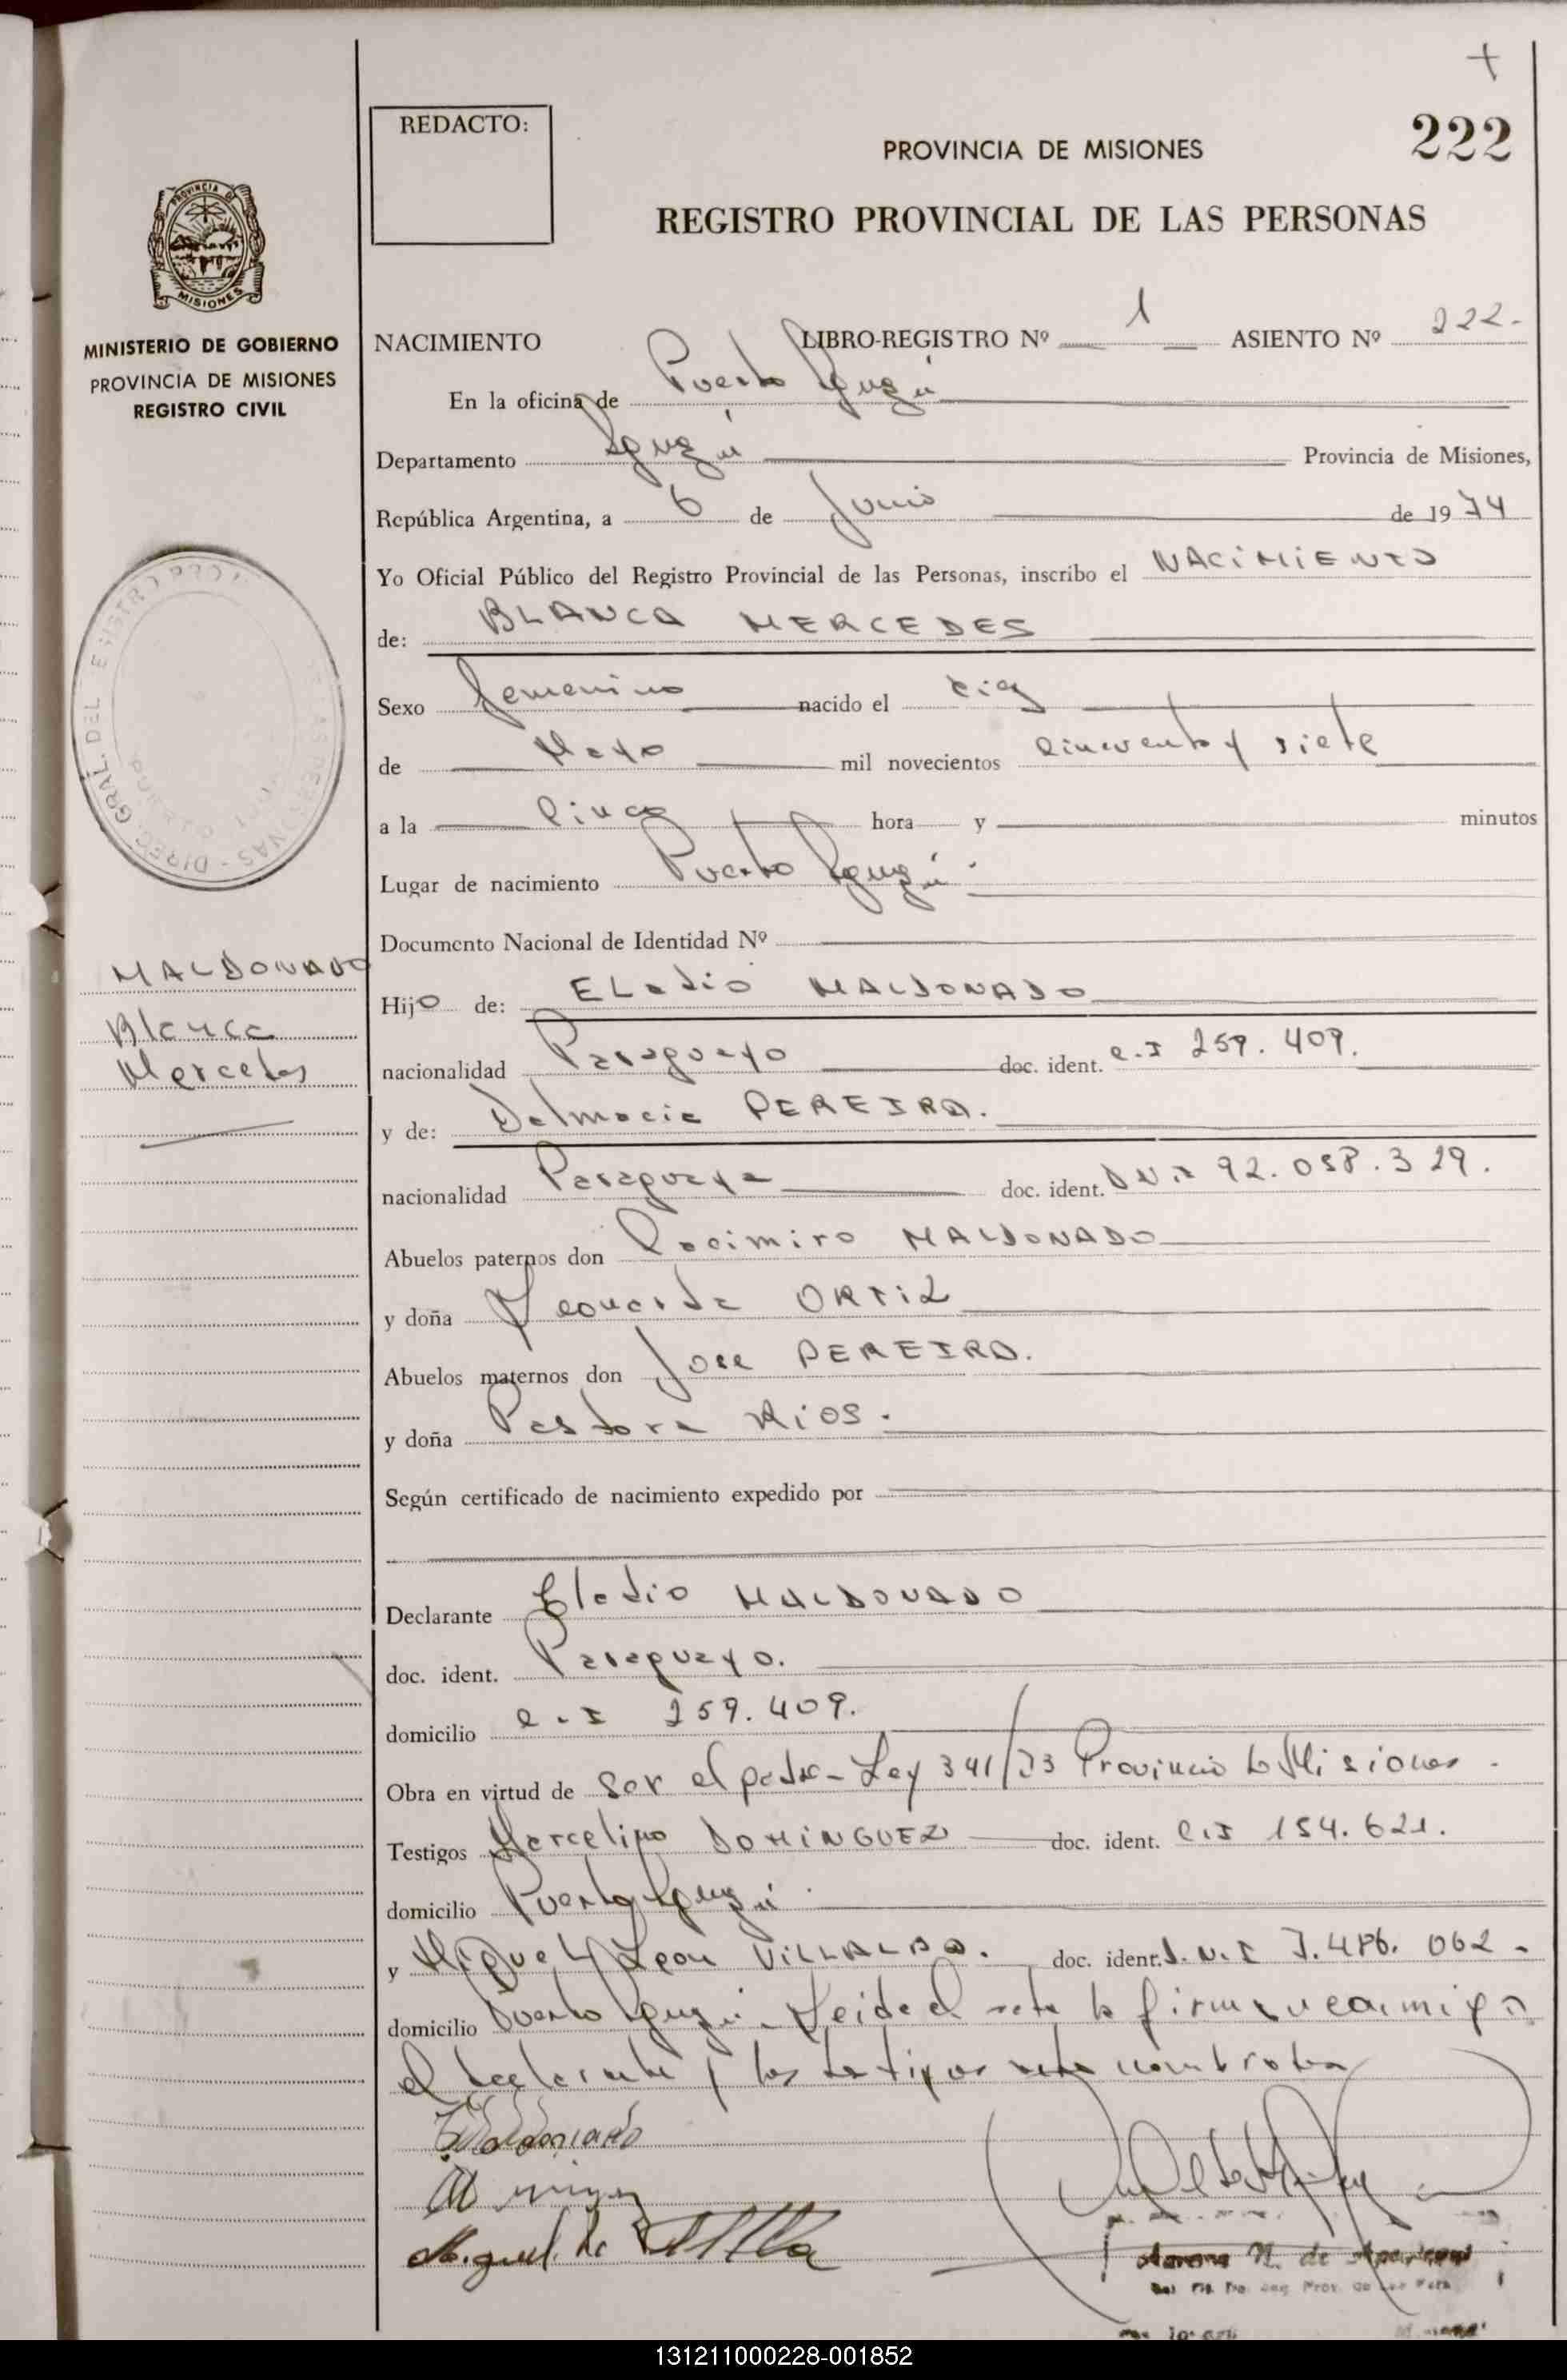 +
REDACTO:
PROVINCIA DE MISIONES
222
REGISTRO PROVINCIAL DE LAS PERSONAS
PROVINCIA DE
MISIONES
MINISTERIO DE GOBIERNO
PROVINCIA DE MISIONES
REGISTRO CIVIL
NACIMIENTO LIBRO-REGISTRO Nº 1 ASIENTO Nº 222.
En la oficina de Puerto Iguazú
Departamento Iguazú Provincia de Misiones,
República Argentina, a 6 de Junio de 1974
Yo Oficial Público del Registro Provincial de las Personas, inscribo el NACIMIENTO
de: BLANCA MERCEDES
Sexo femenino nacido el
de Mayo mil novecientos cincuenta y siete
a la Cinco hora y minutos
Lugar de nacimiento Puerto Iguazú.
Documento Nacional de Identidad Nº
MALDONADO
Blanca
Mercedes
Hijo de: ELadio MALDONADO
nacionalidad Paraguayo doc. ident. C.I 259.409.
y de: Dalmacia PEREIRA.
nacionalidad Paraguaya doc. ident. DNI 92.058.329.
Abuelos paternos don MALDONADO
y doña Leonarda ORTIZ
Abuelos maternos don Jose PEREIRA.
y doña Pastora RIOS.
Según certificado de nacimiento expedido por
Declarante Eladio MALDONADO
doc. ident. Paraguayo.
domicilio C.I 259.409.
Obra en virtud de ser el padre - Ley 341/73 Provincia de Misiones.
Testigos Marcelino DOMINGUEZ doc. ident. C.I 154.621.
domicilio Puerto Iguazú.
y Miguel Leon VILLALBA. doc. ident. D.N.I 7.486.062.
domicilio Puerto Iguazú. Leida el acta la firman conmigo
el declarante y los testigos nombrados
E. Maldonado
Miguel
N. de
131211000228-001852